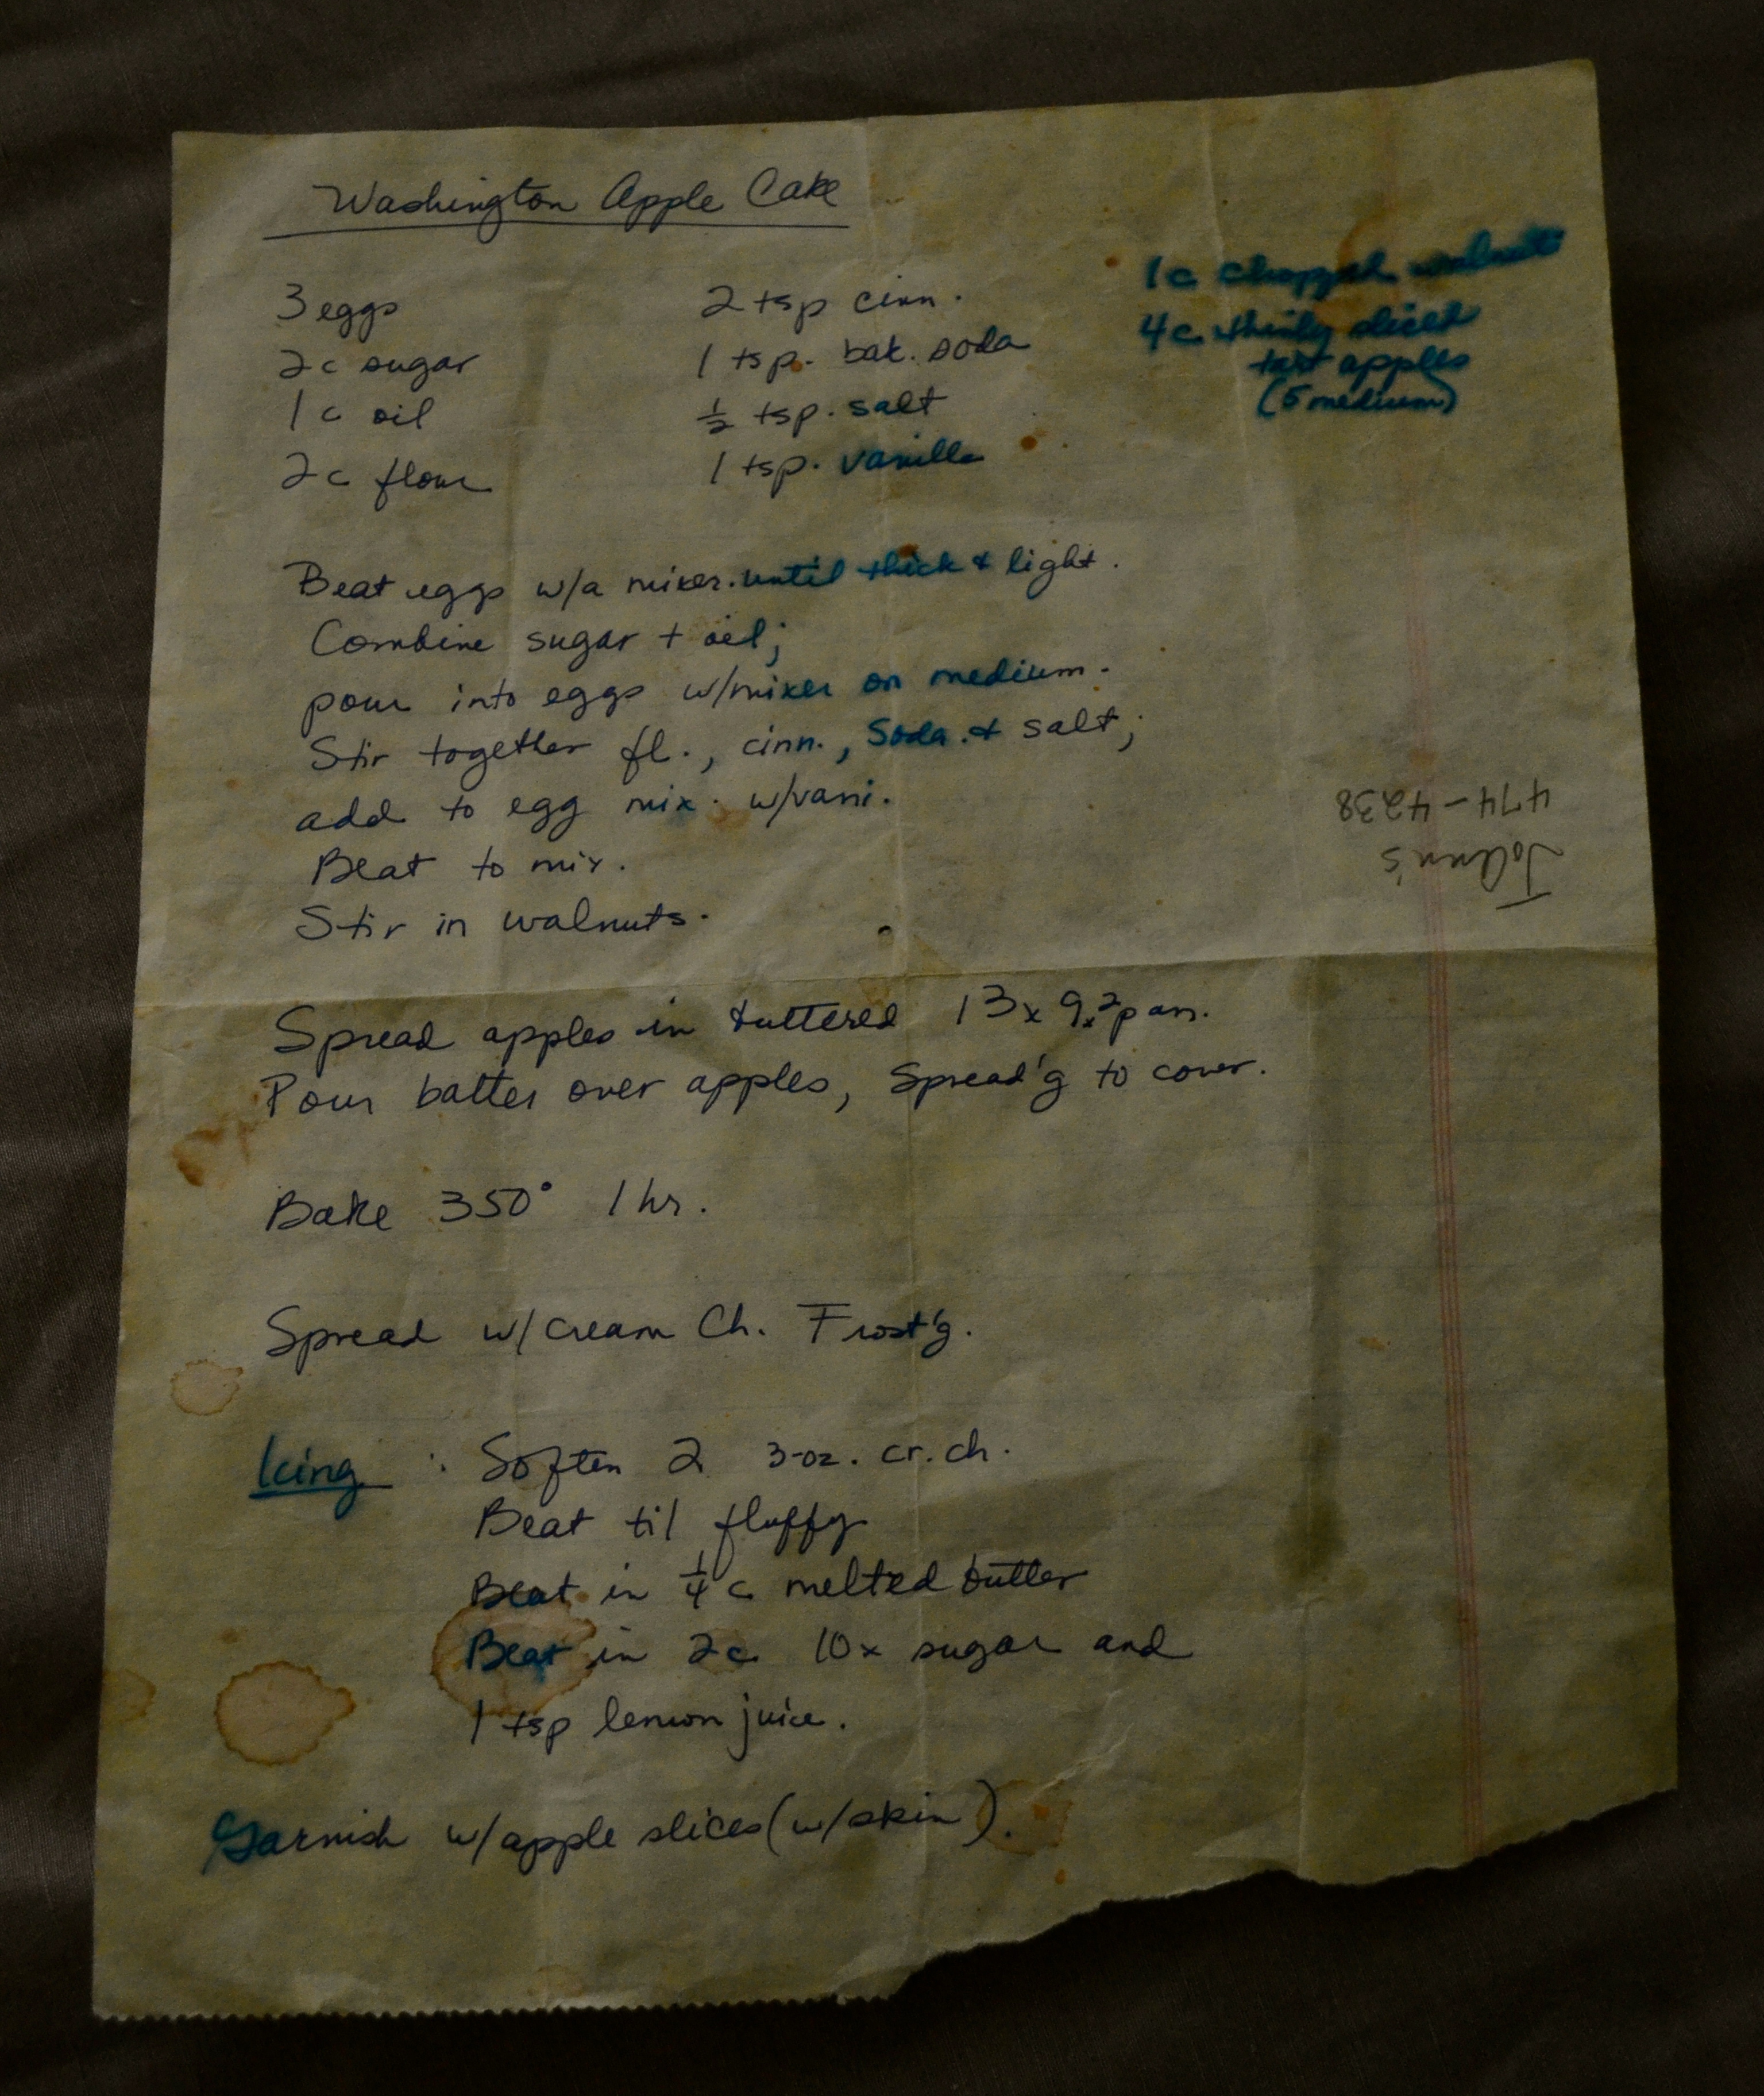 Washington Apple Cake
3 eggs
2 c sugar
1 c oil
2 c flour
2 tsp cinn.
1 tsp. bak. soda
½ tsp. salt
1 tsp. vanilla
1 c chopped walnuts
4 c thinly sliced
tart apples
(5 medium)
Beat eggs w/a mixer. until thick & light.
Combine sugar + oil;
pour into eggs w/mixer on medium.
Stir together fl., cinn., Soda. & salt;
add to egg mix. w/vani.
Beat to mix.
Stir in walnuts.
474-4238
Spread apples in buttered 13x9x2 pan.
Pour batter over apples, Spread'g to cover.
Bake 350° 1 hr.
Spread w/cream Ch. Frost'g.
Icing : Soften 2 3-oz. cr. ch.
Beat til fluffy
Beat in ¼ c melted butter
Beat in 2c 10x sugar and
1 tsp lemon juice.
Garnish w/apple slices (w/skin).